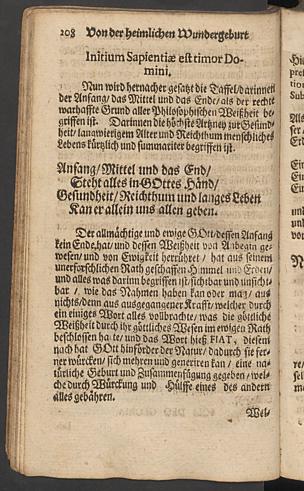 208 Von der heimlichen Wundergeburt
Initium Sapientiæ est timor Do-
mini.
Nun wird hernacher gesatzt die Taffel / darinnen
der Anfang / das Mittel und das Ende / als der rechte
warhaffte Grund aller Philosophischen Weißheit be-
griffen ist. Darinnen die höchste Artzney zur Gesund-
heit / langwierigem Alter und Reichthum menschliches
Lebens kürtzlich und summariter begriffen ist.
Anfang / Mittel und das End /
Steht alles in GOttes Händ /
Gesundheit / Reichthum und langes Leben
Kan er allein uns allen geben.
Der allmächtige und ewige GOtt / dessen Anfang
kein Ende hat / und dessen Weißheit von Anbegin ge-
wesen / und von Ewigkeit herrühret / hat aus seinem
unerforschlichen Rath geschaffen Himmel und Erden /
und alles was darinn begriffen ist / sichtbar und unsicht-
bar / wie das Nahmen haben kan oder mag / aus
nichts / denn aus ausgegangener Krafft / welcher durch
ein einiges Wort alles vollbrachte / was die göttliche
Weißheit durch ihr göttliches Wesen im ewigen Rath
beschlossen hatte / und das Wort hieß FIAT, diesem
nach hat GOtt hinförder der Natur / dadurch sie fer-
ner würcken / sich mehren und generiren kan / eine na-
türliche Geburt und Zusammenfügung gegeben / wel-
che durch Würckung und Hülffe eines des andern
alles gebähren.
Wel-